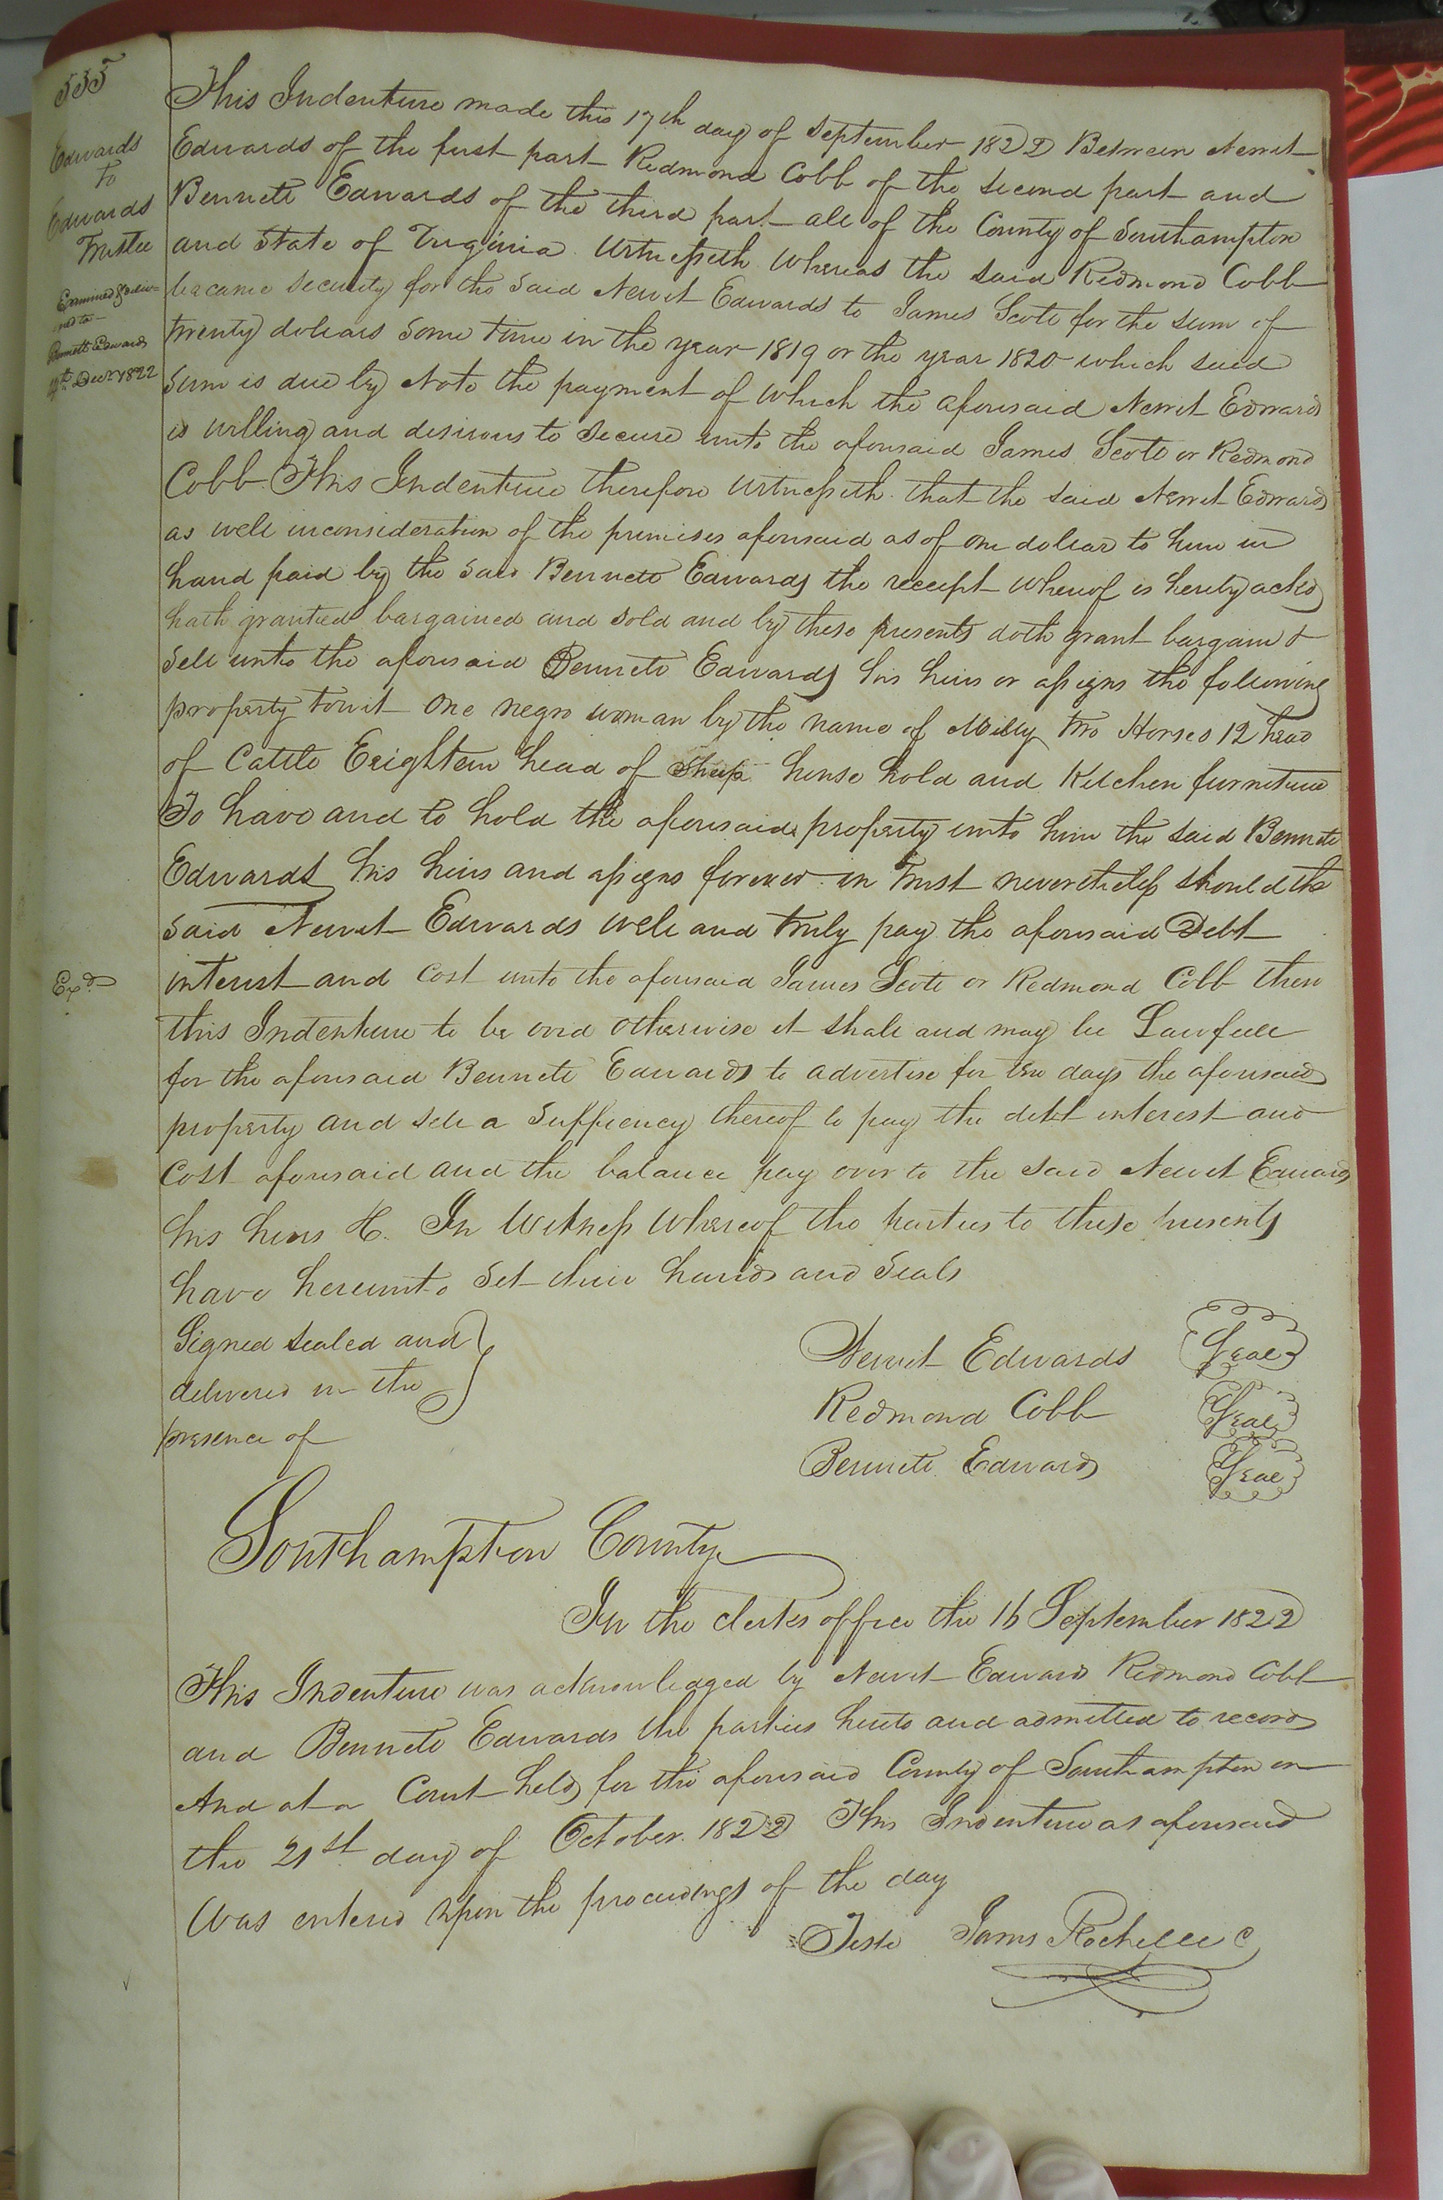 535
Edwards
To
Edwards
Trustee
Examined & deliv-
ered to
Bennett Edwards
19th Decr 1822
This Indenture made this 17th day of September 1822 Between Newit
Edwards of the first part Redmond Cobb of the second part and
Bennett Edwards of the third part all of the County of Southampton
and State of Virginia Witnesseth Whereas the said Redmond Cobb
became security for the said Newit Edwards to James Scott for the sum of
twenty dollars some time in the year 1819 or the year 1820 which said
sum is due by Note the payment of which the aforesaid Newit Edwards
is willing and desirous to secure unto the aforesaid James Scott or Redmond
Cobb This Indenture therefore Witnesseth that the said Newit Edwards
as well inconsideration of the premises aforesaid as of one dollar to him in
hand paid by the said Bennett Edwards the receipt whereof is hereby ackd
hath granted bargained and sold and by these presents doth grant bargain &
sell unto the aforesaid Bennett Edwards his heirs or assigns the following
property towit One negro woman by the name of Milly two Horses 12 head
of Cattle Eeighteen head of sheep house hold and Kitchen furniture
To have and to hold the aforesaid property unto him the said Bennett
Edwards his heirs and assigns forever in Trust nevertheless should the
said Newit Edwards well and truly pay the aforesaid Debt
Exd
interest and Cost unto the aforesaid James Scott or Redmond Cobb then
this Indenture to be void otherwise it shall and may be Lawfull
for the aforesaid Bennett Edwards to advertise for ten days the aforesaid
property and sell a suffiency thereof to pay the debt interest and
Cost aforesaid and the balance pay over to the said Newit Edwards
his heirs &c. In Witness Whereof the parties to these presents
have hereunto set their hands and seals
Signed sealed and
delivered in the
presence of
Newit Edwards Seal
Redmond Cobb Seal
Bennett Edwards Seal
Southampton County
In the clerks office the 16 September 1822
This Indenture was acknowledged by Newit Edwards Redmond Cobb
and Bennett Edwards the parties hereto and admitted to record
And at a Court held for the aforesaid County of Southampton on
the 21st day of October 1822 This Indenture as aforesaid
Was entered upon the proceedings of the day
Teste James Rochelle C